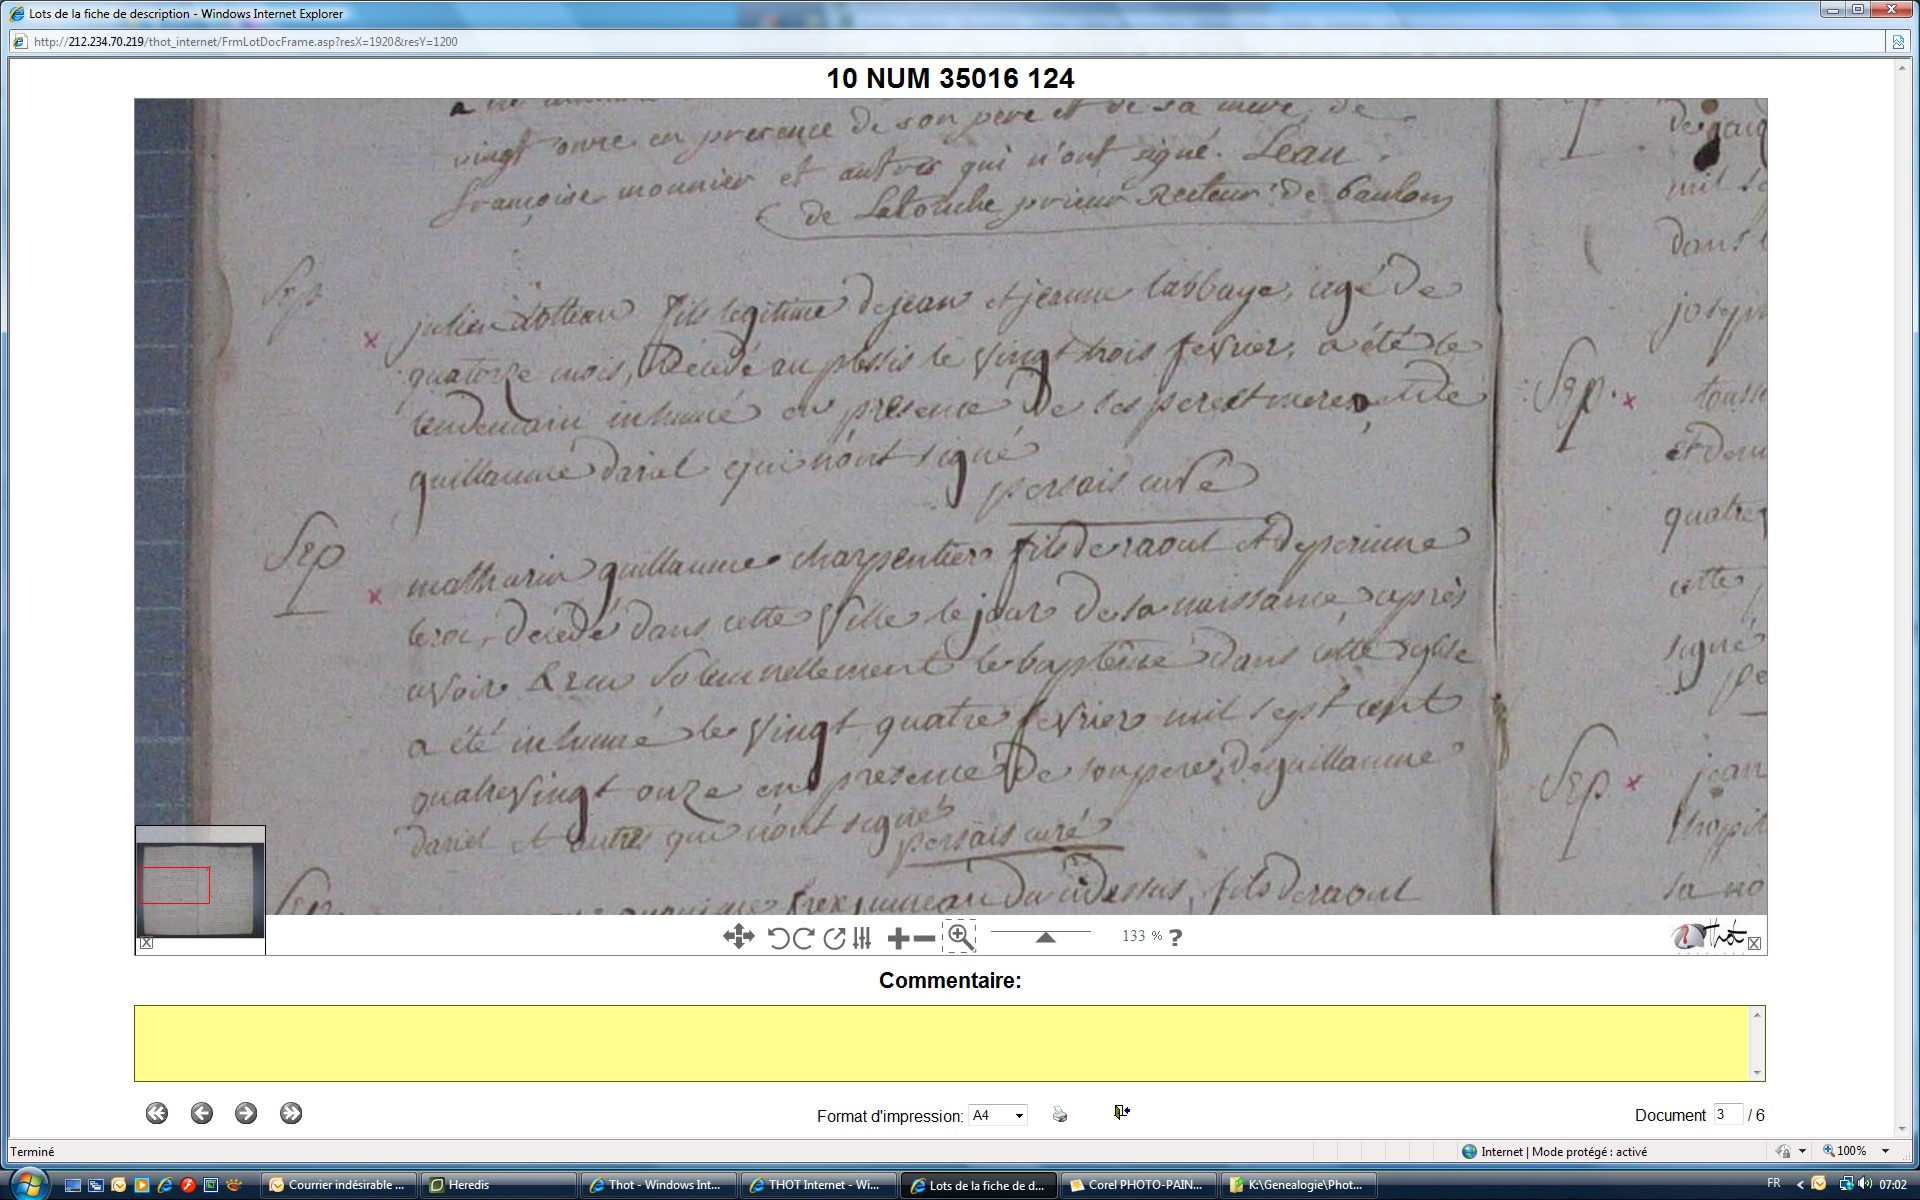 Lots de la fiche de description - Windows Internet Explorer
http://212.234.70.219/thot_internet/FrmLotDocFrame.asp?resX=1920&resY=1200
10 NUM 35016 124
vingt onze en presence de son pere et de sa mere, de
françoise monnier et autres qui n'ont signé. Leau
de Latouche prieur Recteur de
Sep
julien fils legitime de jean et jeanne labbaye, agé de
quatorze mois, decedé au plessis le vingt trois fevrier, a été le
lendemain inhumé en presence de ses pere et mere, et de
guillaume daniel qui n'ont signé
persais curé
Sep
mathurin guillaume charpentier fils de raoul et de perinne
leroi, decedé dans cette ville le jour de sa naissance, après
avoir Recu solemnellement le baptême dans cette eglise
a été inhumé le vingt quatre fevrier mil sept cent
quatrevingt onze en presence de son pere, de guillaume
daniel et autres qui n'ont signé
persais curé
Sep
frere jumeau du cidessus, fils de raoul
dans
joseph
Sep.
quatre
cette
signé
Sep
jean
133 % ?
Thot
Commentaire:
Format d'impression: A4
Document 3 / 6
Terminé
Internet | Mode protégé : activé
100%
Courrier indésirable ...
Heredis
Thot - Windows Int...
THOT Internet - Wi...
Lots de la fiche de d...
Corel PHOTO-PAIN...
K:\Genealogie\Phot...
FR
07:02